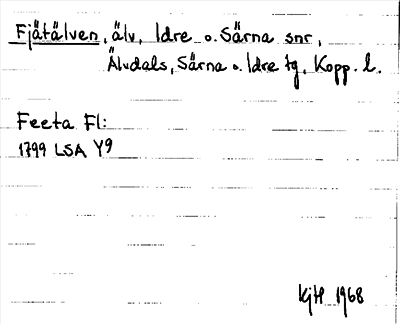 Fjätälven, älv, Idre o. Särna snr,
Älvdals, Särna o. Idre tg, Kopp. l.
Feeta Fl:
1799 LSA Y9
KjH 1968